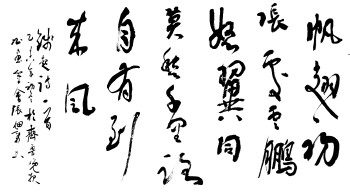 帆翅初
張處雲鵬
怒翼同
莫愁千里路
自有到
來風
錢起詩一首